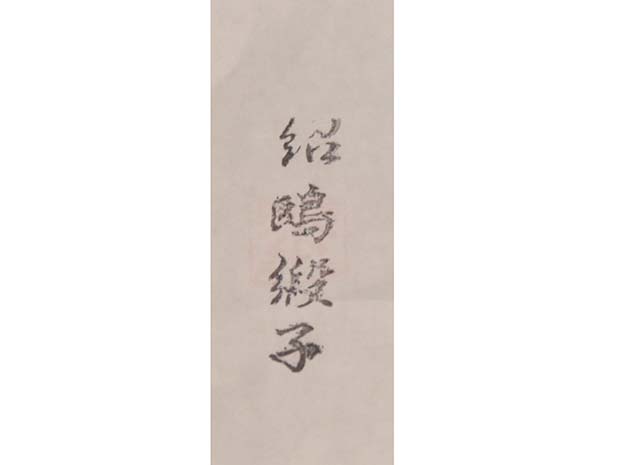 紹鴎緞子